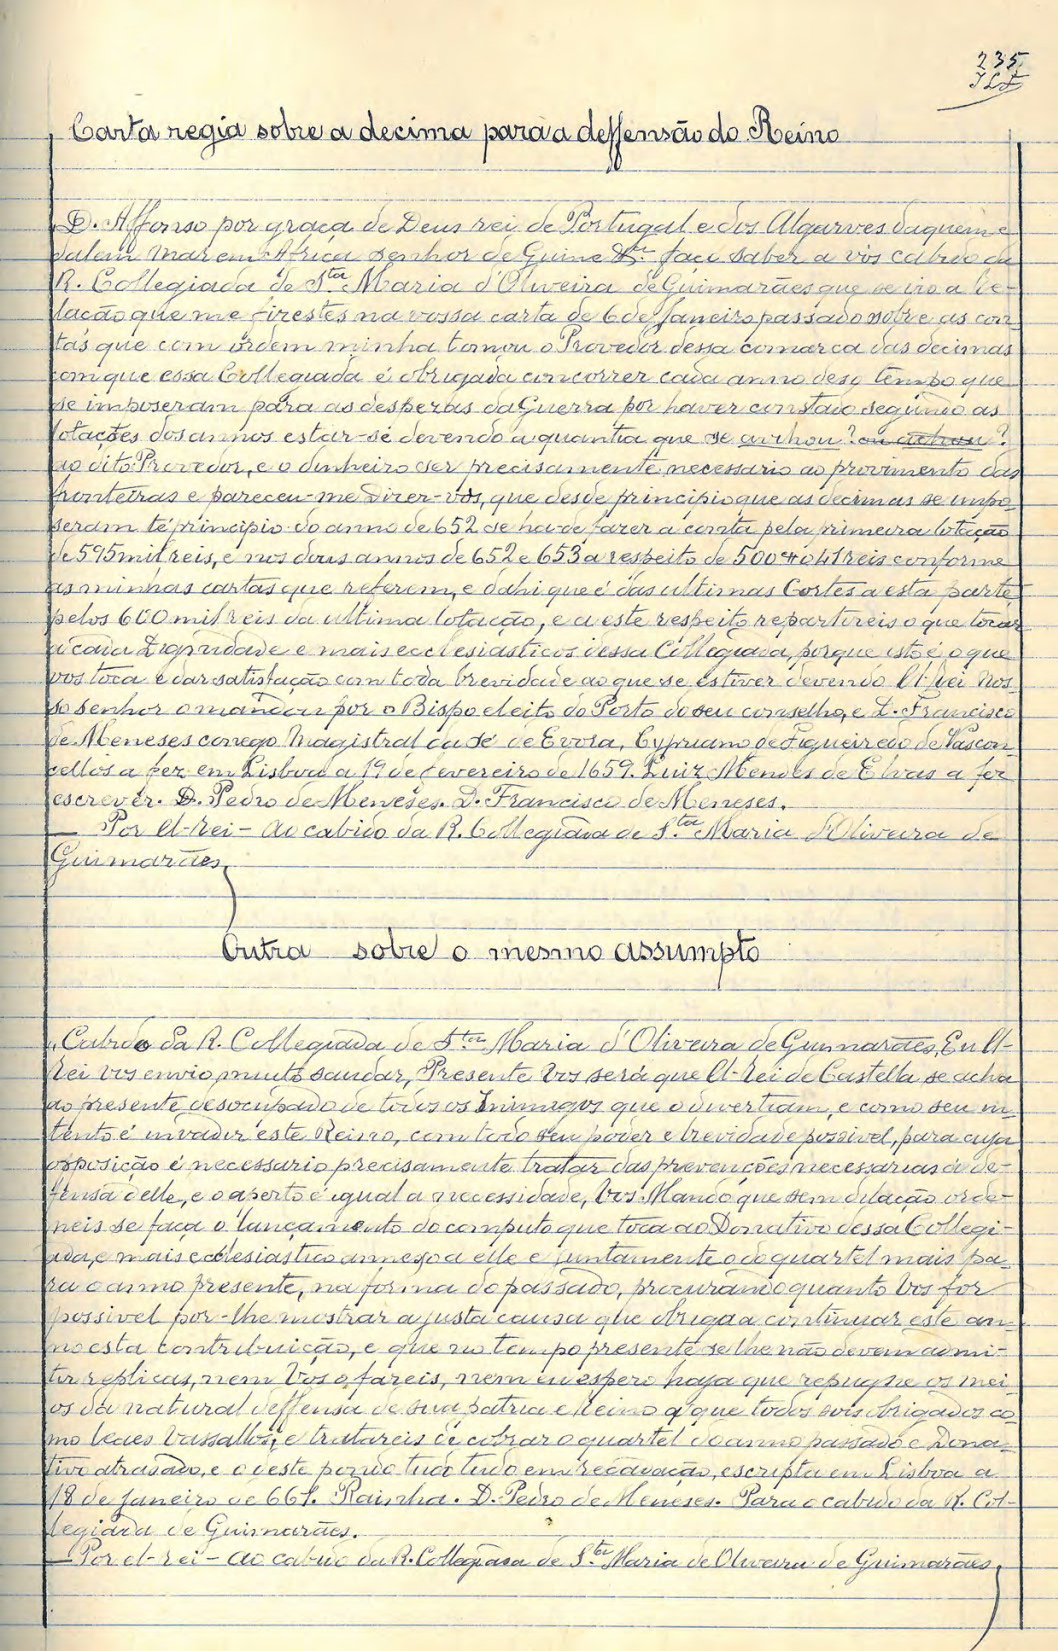 235
Carta regia sobre a decima para a deffensão do Reino
D. Affonso por graça de Deus rei de Portugal e dos Algarves daquem e
dalem mar em Africa senhor de Guine &. faço saber a vós cabido da
R. Collegiada de S.ta Maria d'Oliveira de Guimarães que se viu a Re-
lação que me fizestes na vossa carta de 6 de Janeiro passado sobre as con-
tas que com ordem minha tomou o Provedor dessa comarca das decimas
com que essa Collegiada é obrigada concorrer cada anno desq tempo que
se imposeram para as despezas da Guerra por haver constado segundo as
lotações dos annos estar-se devendo a quantia que se
ao dito Provedor, e o dinheiro ser precisamente necessario ao provimento das
fronteiras e pareceu-me dizer-vos, que desde principio que as decimas se impo-
seram té principio do anno de 652 se ha de fazer a conta pela primeira lotação
de 595 mil reis, e nos dous annos de 652 e 653 a respeito de 500#041 reis conforme
as minhas cartas que referem, e dahi que é das ultimas Cortes a esta parte
pelos 600 mil reis da ultima lotação, e a este respeito repartireis o que tocar
a cada Dignidade e mais ecclesiasticos dessa Collegiada, porque isto é o que
vos toca e dar satisfação com toda brevidade ao que se estiver devendo El-rei Nos-
so senhor o mandou por o Bispo eleito do Porto do seu conselho, e D. Francisco
de Meneses conego Magistral da sé de Evora, Cypriano de Figueiredo de Vascon-
cellos a fez em Lisboa a 19 de fevereiro de 1659. Luiz Mendes de Elvas a fez
escrever. D. Pedro de Meneses. D. Francisco de Meneses.
— Por El-rei – Ao cabido da R. Collegiada de S.ta Maria d'Oliveira de
Guimarães
Outra sobre o mesmo assumpto
Cabido da R. Collegiada de S.ta Maria d'Oliveira de Guimarães, Eu El-
Rei vos envio muito saudar, Presente Vos será que El-Rei de Castella se acha
ao presente desocupado de todos os Inimigos que o divertiam, e como seu in-
tento é invadir este Reino, com todo seu poder e brevidade possivel, para cuja
opposição é necessario precisamente tratar das prevenções necessarias á de-
fensa delle, e o aperto é igual a necessidade, Vos Mando que sem dilação orde-
neis se faça o lançamento do computo que toca ao Donativo dessa Collegi-
ada, e mais ecclesiastico annexo a elle e juntamente o do quartel mais pa-
ra o anno presente, na forma do passado, procurando quanto Vos for
possivel por-lhe mostrar a justa causa que obriga a continuar este an-
no esta contribuição, e que no tempo presente se lhe não devem admi-
tir replicas, nem Vos o fareis, nem eu espero haja que repugne os mei-
os da natural deffensa de sua patria e Reino a que todos sois obrigados co-
mo leaes Vassallos, e tratareis de cobrar o quartel do anno passado e Dona-
tivo atrasado, e o deste pondo tudo em recadação, escripta em Lisboa a
18 de Janeiro de 661. Rainha. D. Pedro de Meneses. Para o cabido da R. Col-
legiada de Guimarães.
— Por el-rei – Ao cabido da R. Collegiada de S.ta Maria de Oliveira de Guimarães